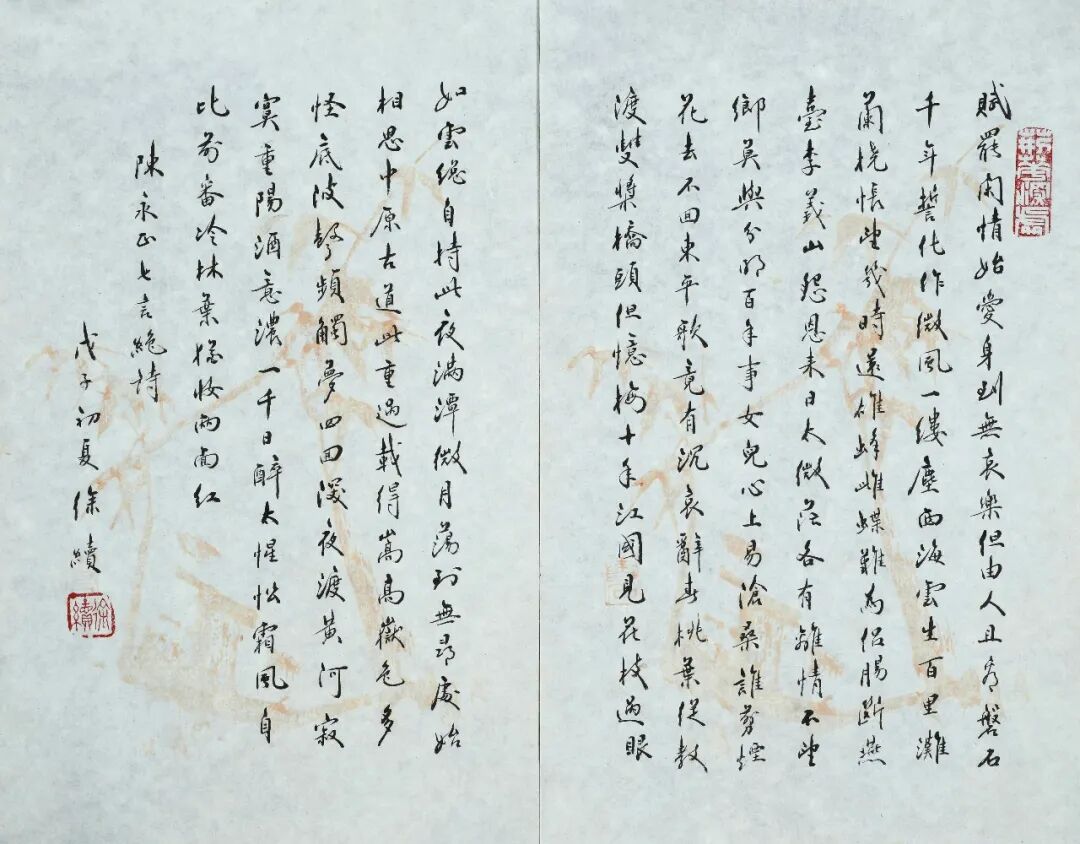 賦罷閑情始愛身到無哀樂但由人且看磐石
千年誓化作微風一縷塵西海雲生百里灘
蘭橈悵望幾時還雄蜂雌蝶難為侶腸斷燕
臺李義山怨恩来日太微茫各有離情不望
鄉莫與分明百年事女兒心上易滄桑誰剪煙
花去不回東平歌竟有沉哀辭春桃葉從教
渡雙槳橋頭但憶梅十年江國見花枝過眼
如雲總自持此夜滿潭微月蕩到無尋處始
相思中原古道此重過載得嵩高嶽色多
怪底陂聲頻觸夢四回深夜渡黃河寂
寞重陽酒意濃一千日醉太惺忪霜風自
比前番冷林葉猶妝兩面紅
陳永正七言絶詩
戊子初夏徐續
徐續